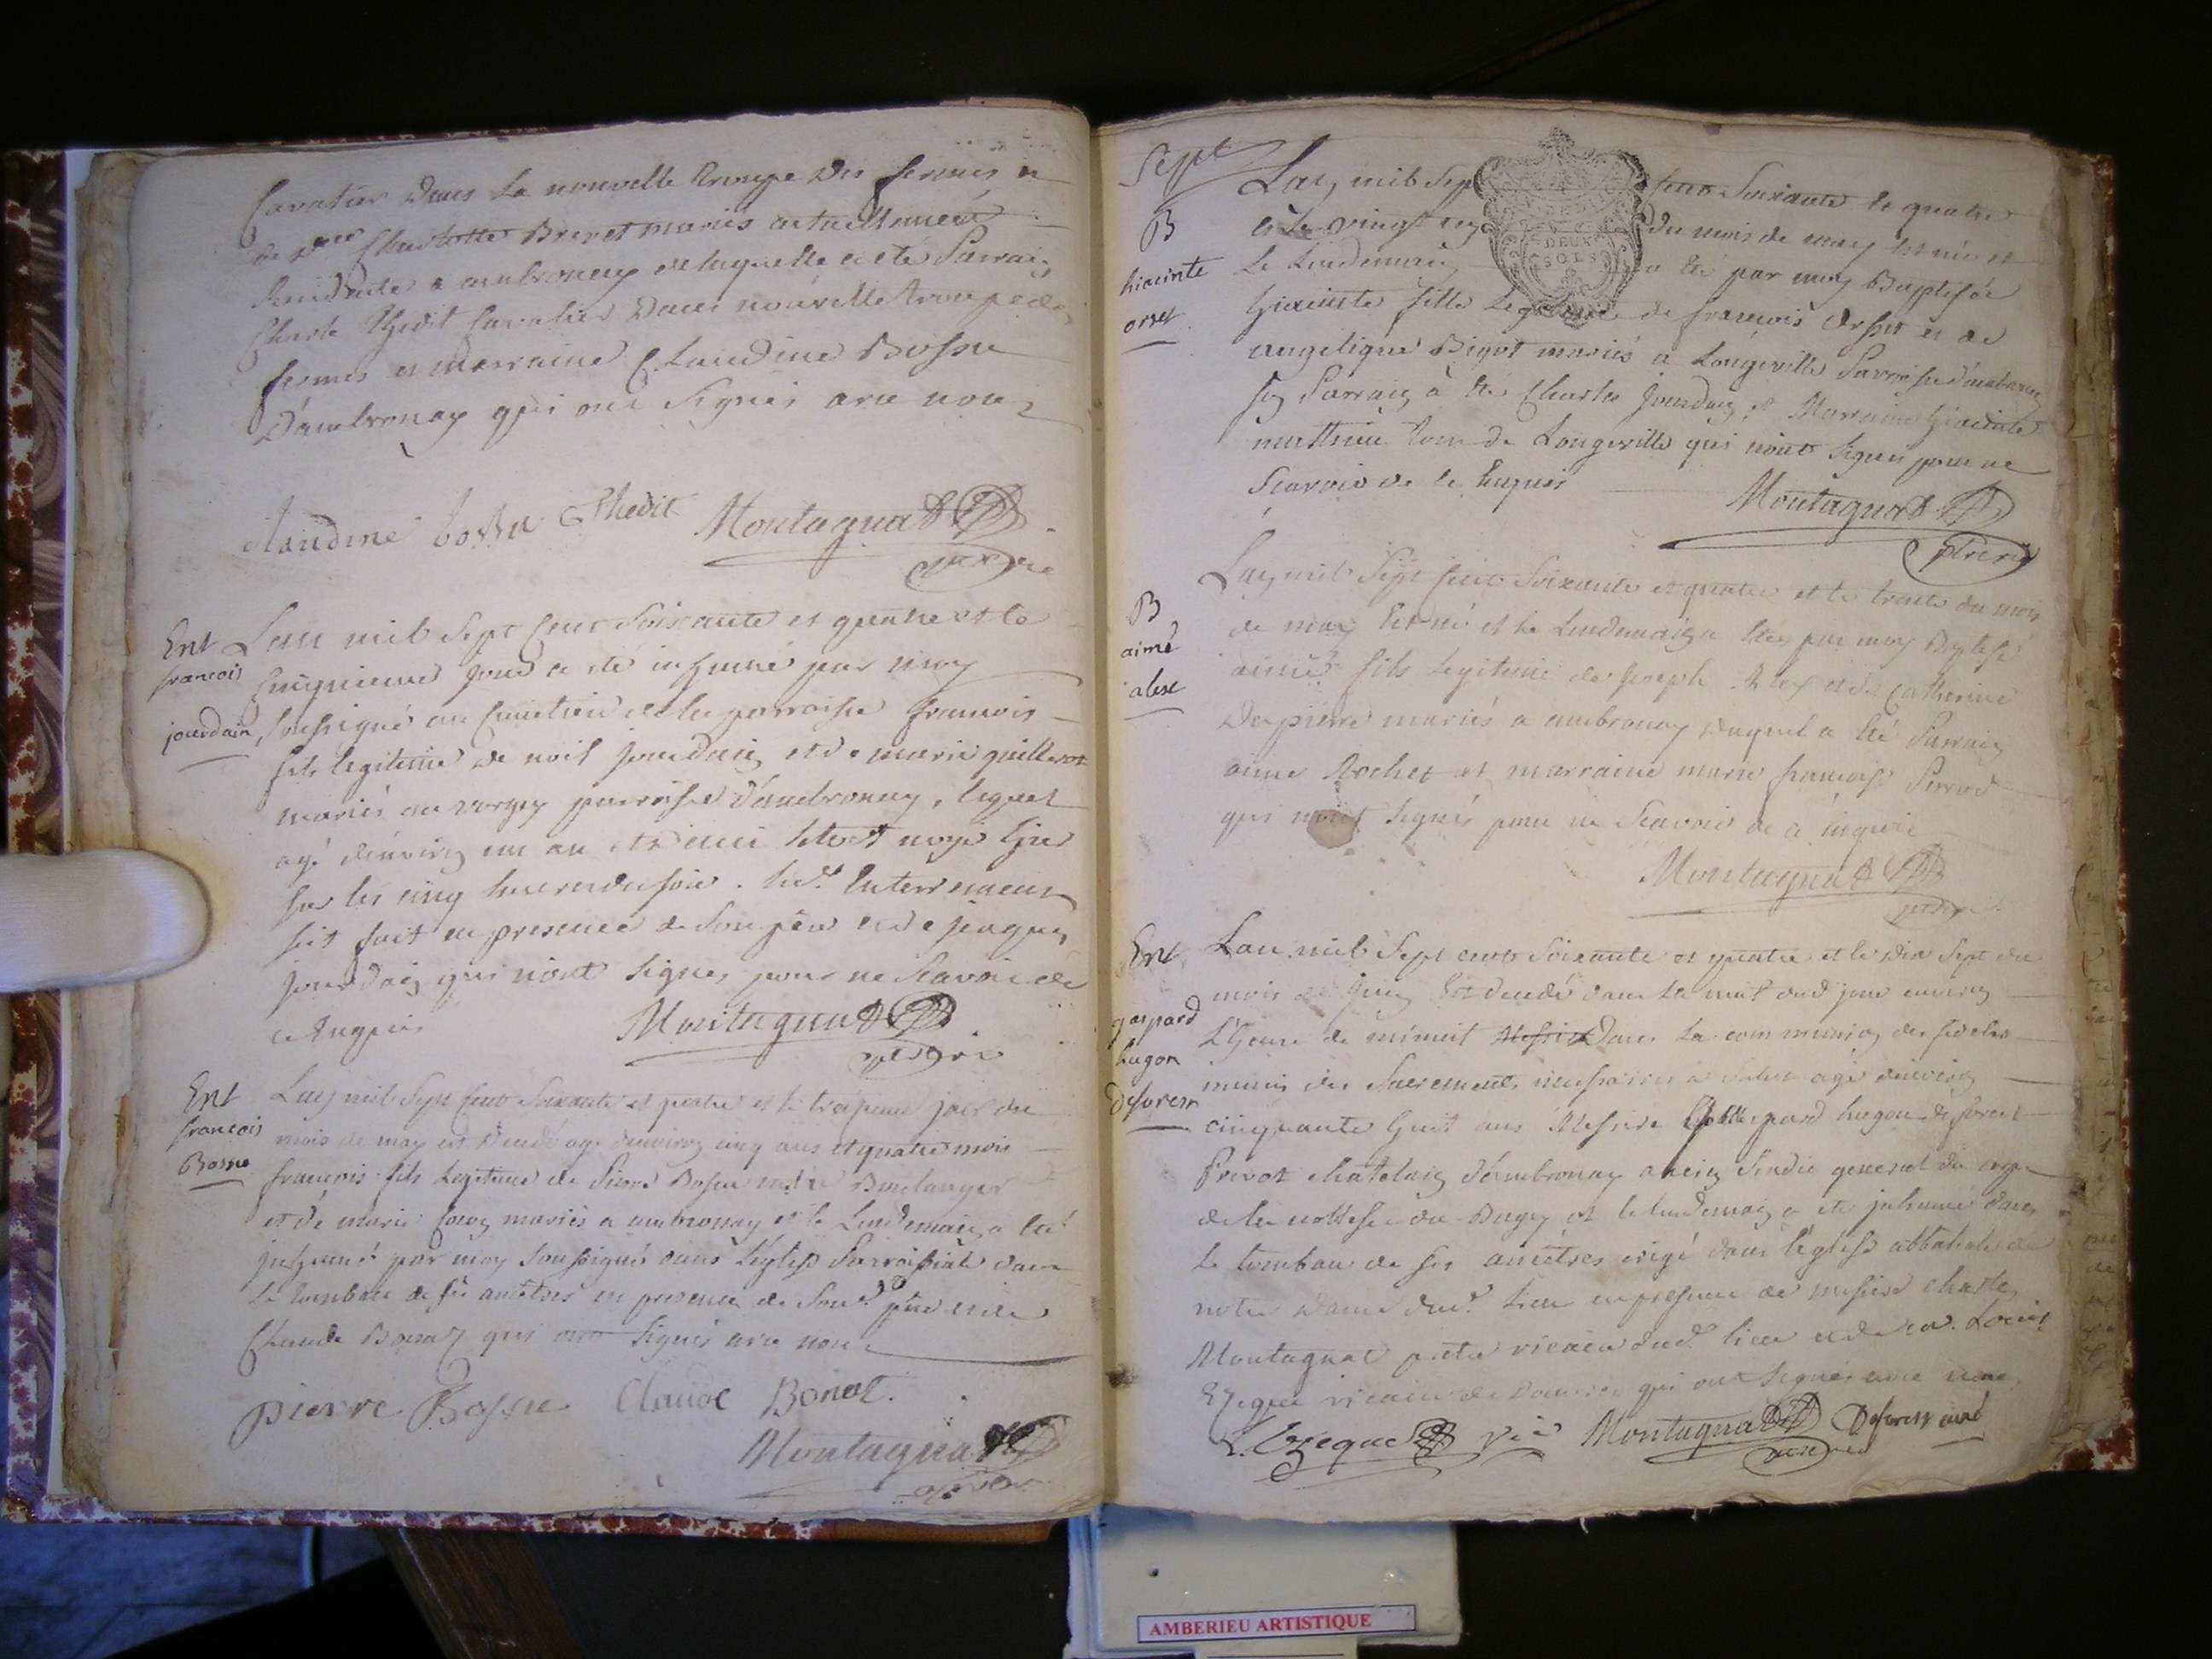 Cavalier dans la nouvelle troupe des fermes et
de dlle Charlotte Brevet mariés actuellement
residents a ambronay de laquelle a été Parrain
Charle Thedit Cavalier dans nouvelle troupe des
fermes et marraine Claudine Bossu
d'ambronay qui ont signés avec nous
claudine bossu C Thedit Montagnat
ptre vic
Ent
francois
jourdain
Lan mil sept cent soixante et quatre et le
cinquieme jour a été inhumé par moy
soussigné au cimetiere de la parroisse francois
fils legitime de noël jourdain et de marie guillerot
mariés au vorgey parroisse d'ambronay, lequel
agé denviron un an et demi setoit noyé hier
sur les cinq heures du soir. led. enterrement
fut fait en presence de son père et de jaque
jourdain qui n'ont signes pour ne scavoir de
ce enquis
Montagnat
ptre vic
Ent
francois
Bossu
Lan mil sept cent soixante et quatre et le treizieme jour du
mois de may est decedé agé denviron cinq ans et quatre mois
francois fils legitime de Pierre Bossu mtre Boulanger
et de marie mariés a ambronay et le lendemain a été
inhumé par moy soussigné dans l'église Parroissiale dans
le tombeau de ses ancêtres en presence de sond. père et de
Claude Bonat qui ont signés avec nous
pierre Bossu Claude Bonat.
Montagnat
ptre vic
Sept
B
hiacinte
orset
Lan mil sept cent soixante et quatre
et le vingt du mois de may est née et
le lendemain a été par moy Baptisée
hiacinte fille legitime de francois Orset et de
angelique Bigot mariés a Longeville Parroisse d'ambronay
son Parrain à été Charles jourdain et Marraine hiacinte
matthieu tous de Longeville qui n'ont signes pour ne
scavoir de ce enquis
Montagnat
ptre vic
B
aimé
alex
Lan mil sept cent soixante et quatre et le trente du mois
de may est né et le lendemain a été par moy Baptisé
aimé fils legitime de joseph Alex et de Catherine
Depierre mariés a ambronay duquel a été Parrain
aimé Rochet et marraine marie francoise Perrod
qui n'ont signés pour ne scavoir de ce enquis
Montagnat
ptre vic
Ent
gaspard
hugon
deforest
Lan mil sept cent soixante et quatre et le dix sept du
mois de juin est decedé dans la nuit dud jour environ
l'heure de minuit dans la communion des fideles
munis des Sacrements necessaires a salut agé denviron
cinquante huit ans Messire gaspard hugon deforest
Prevot chatelain d'ambronay ancien sindic general du corps
de la noblesse du Bugey et le lendemain a été inhumé dans
le tombeau de ses ancêtres erigé dans l'église abbatiale de
notre Dame dud. lieu en presence de messire charle
Montagnat pretre vicaire dud. lieu et de Louis
Ezeque vicaire de Douvres qui ont signés avec nous
L. Ezeque vic Montagnat Deforest curé
ptre vic
AMBERIEU ARTISTIQUE